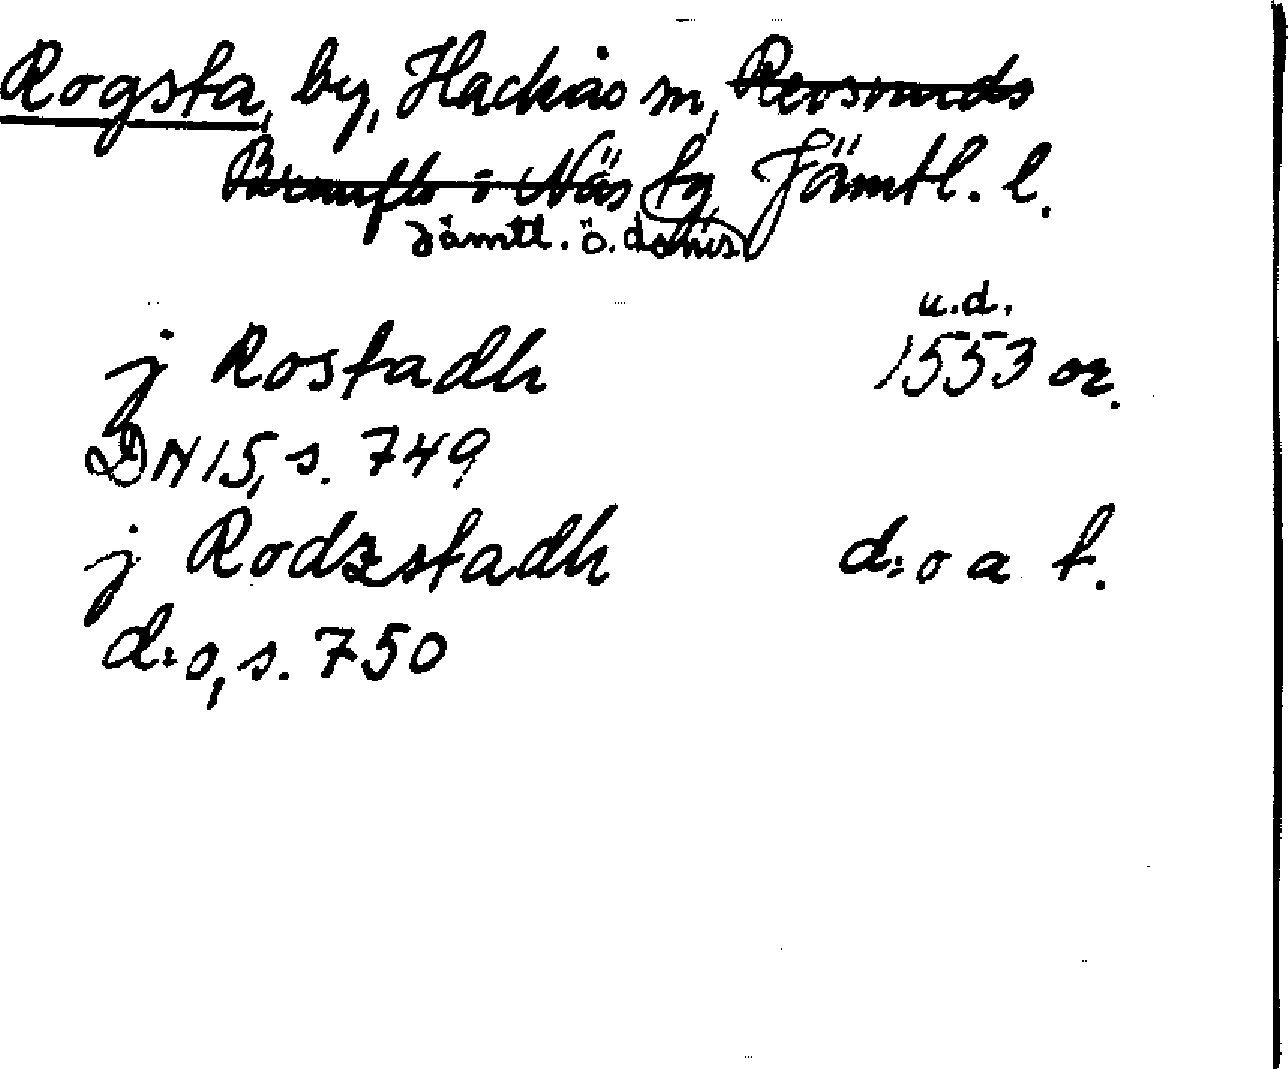 Rogsta, by, Hackås sn, Revsunds
Brunflo o Näs tg Jämtl. l.
Jämtl. ö. doms
u.d.
j Rostadh 1553 or.
DN 15, s. 749
j Rodzstadh d:o a t.
d:o, s. 750